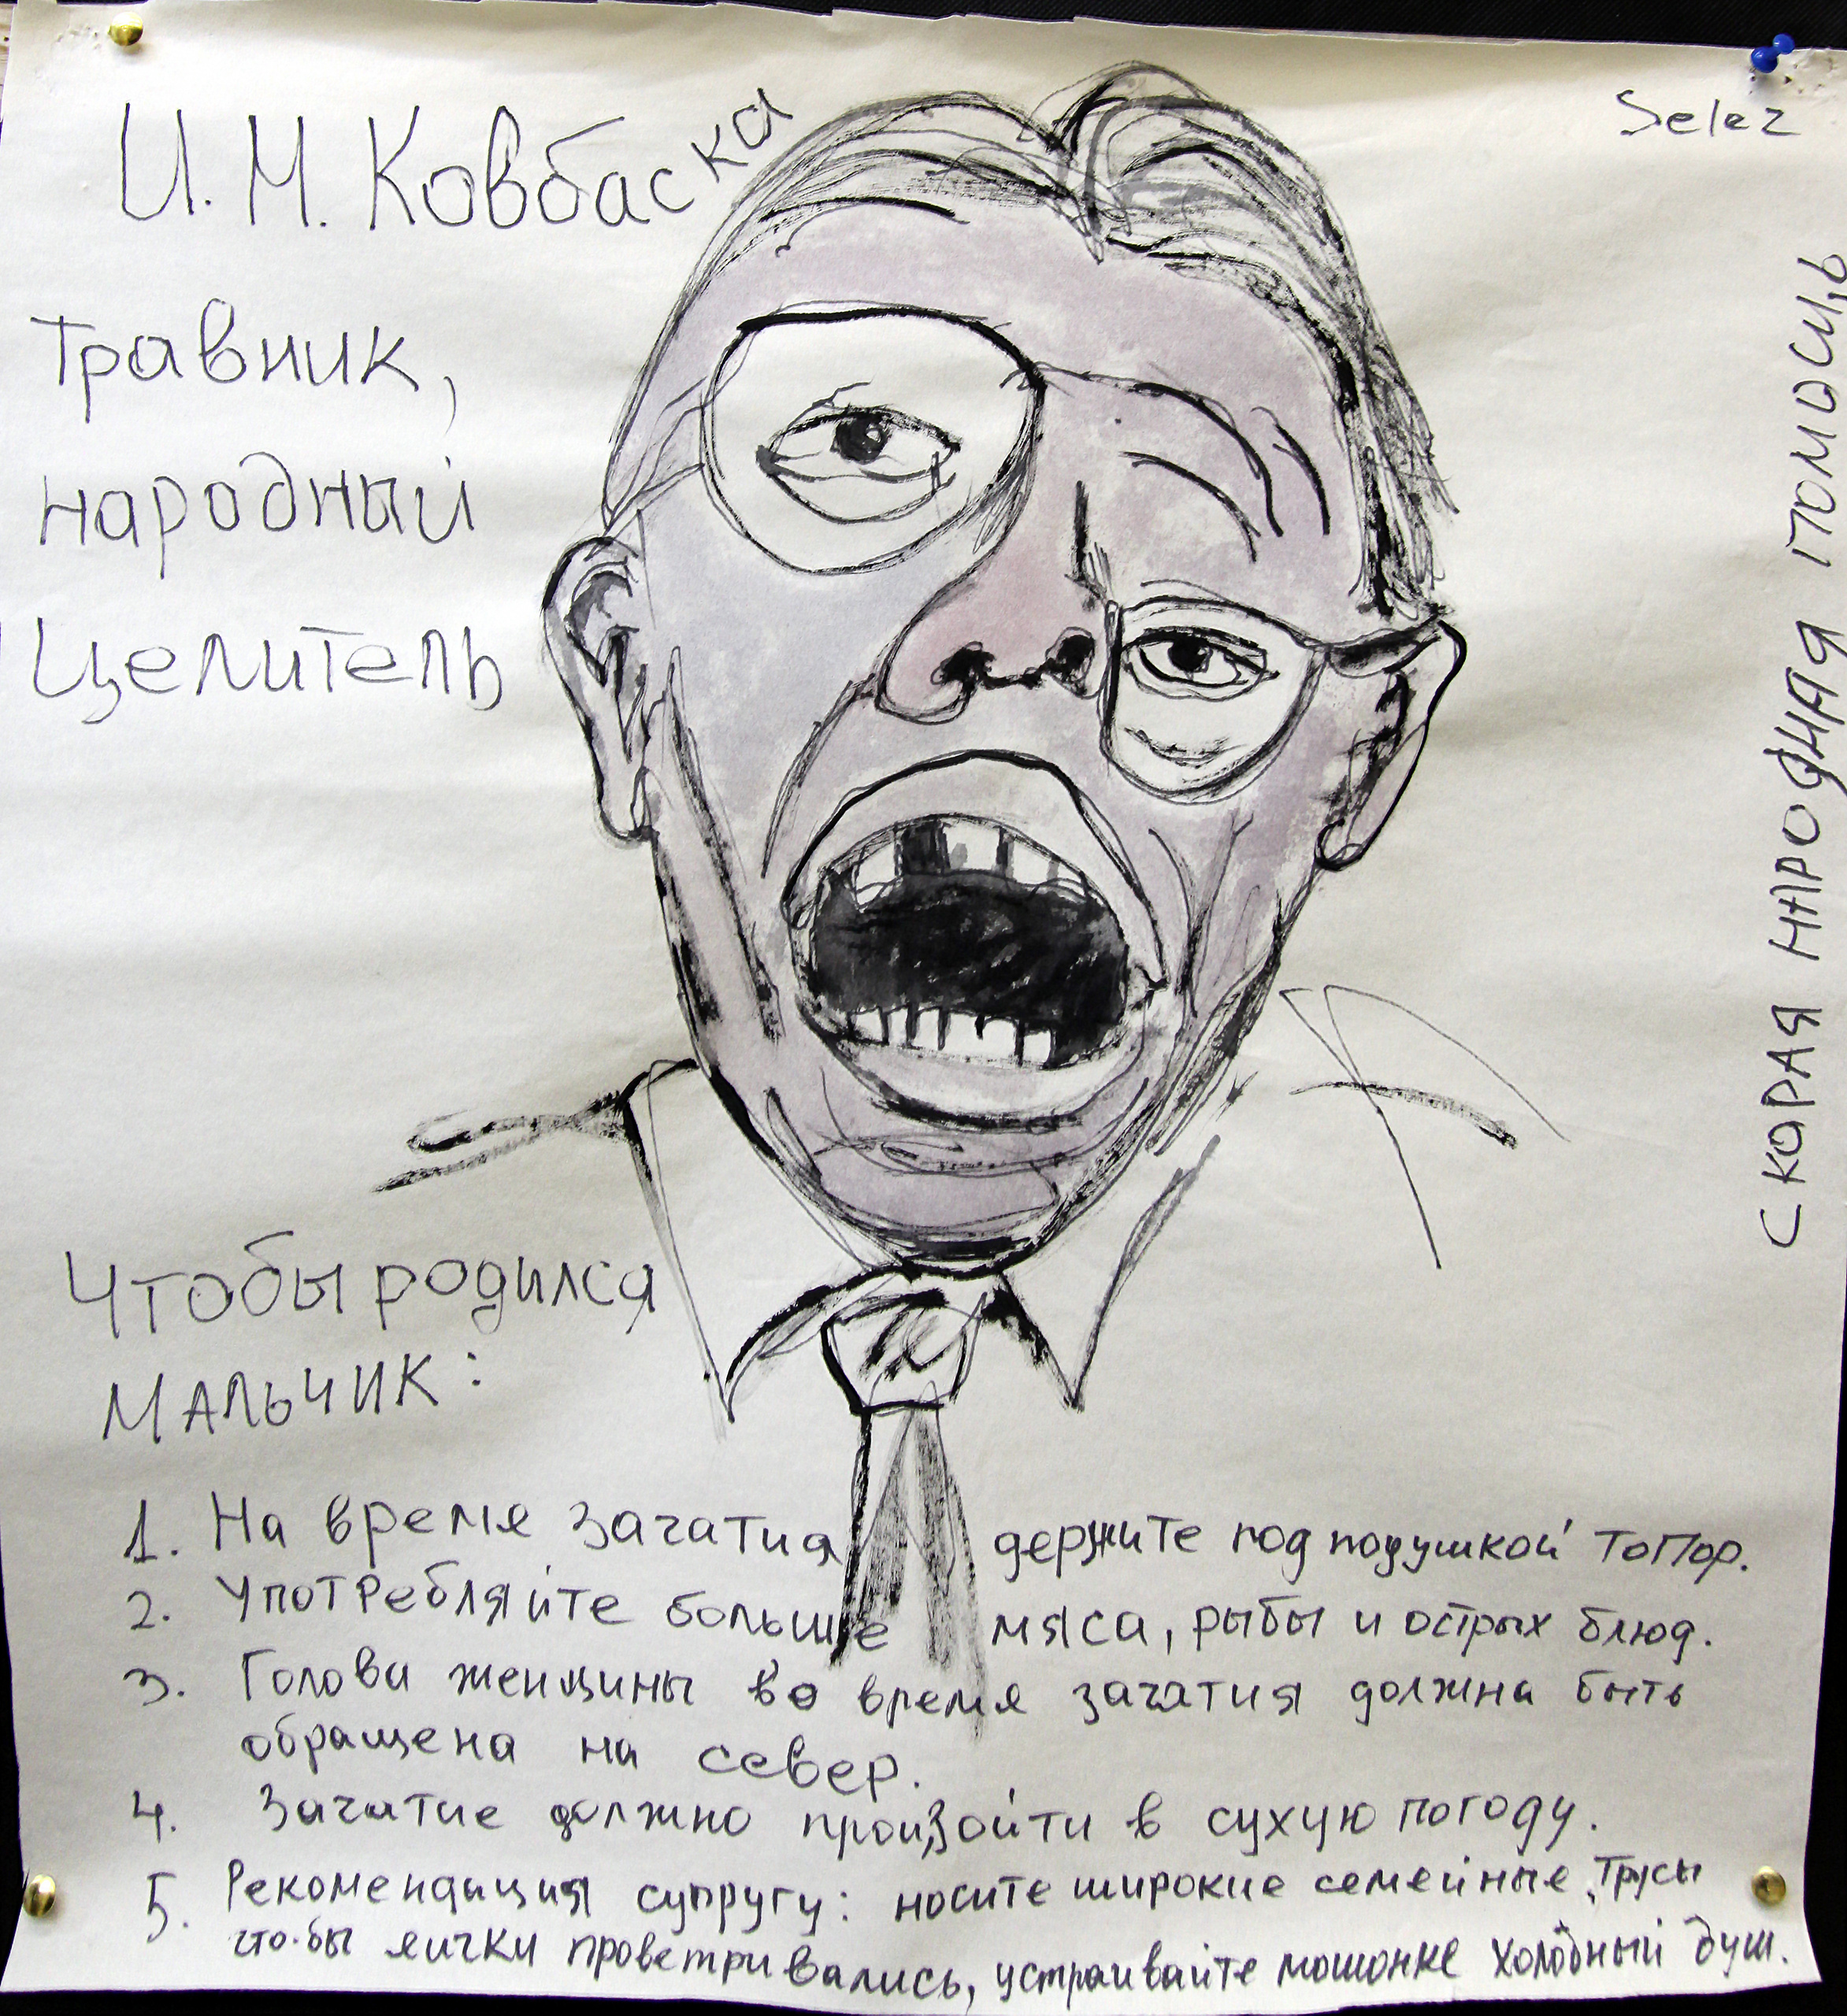 И. М. Ковбаска
Selez
Травник,
народный
целитель
СКОРАЯ НАРОДНАЯ ПОМОЩЬ
Чтобы родился
МАЛЬЧИК:
1. На время зачатия держите под подушкой топор.
2. Употребляйте больше мяса, рыбы и острых блюд.
3. Голова женщины во время зачатия должна быть
обращена на север.
4. Зачатие должно произойти в сухую погоду.
5. Рекомендация супругу: носите широкие семейные трусы
что-бы яички проветривались, устраивайте мошонке холодный душ.